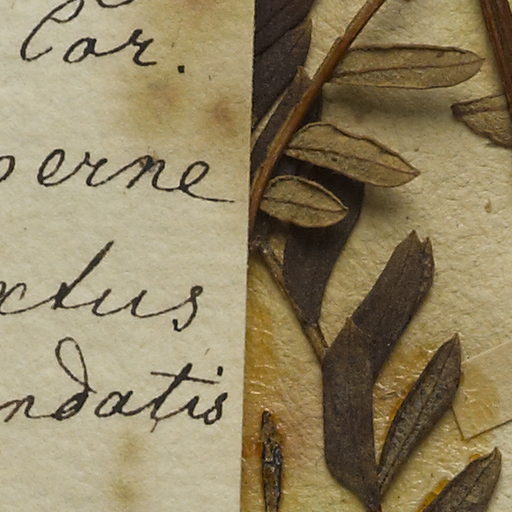 Car.
perne
ctus
ndatis